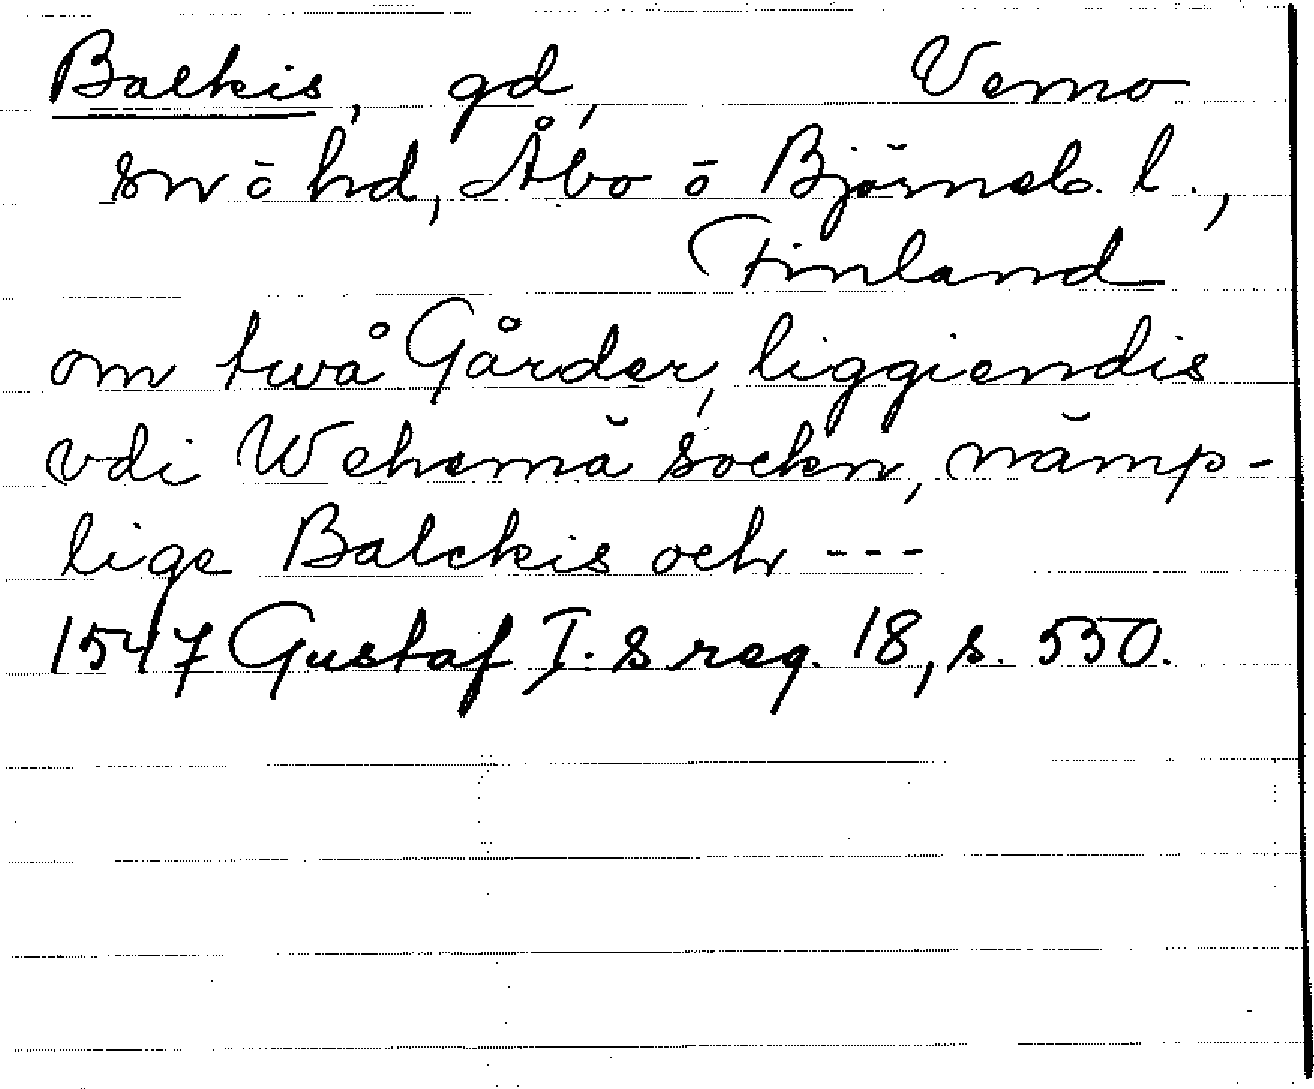 Balkis, gd, Vemo
sn o hd, Åbo o Björneb. l.,
Finland
om twå Gårder, liggiendis
vdi Wehemä sockn, nämp-
lige Balckis och ---
1547 Gustaf I:s reg. 18, s. 550.